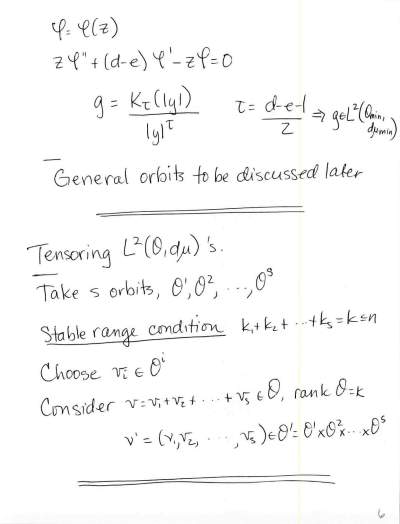 φ = φ(z)
zφ'' + (d-e)φ' - zφ = 0
g = K_τ(|y|) / |y|^τ    τ = (d-e-1)/2 ⇒ g∈L²(O_min, dμ_min)
General orbits to be discussed later
Tensoring L²(O,dμ)'s.
Take s orbits, O¹, O², ..., O^s
Stable range condition k₁+k₂+...+k_s = k ≤ n
Choose v_i ∈ O^i
Consider v = v₁+v₂+...+v_s ∈ O, rank O = k
v' = (v₁,v₂, ..., v_s) ∈ O' = O¹×O²×...×O^s
6